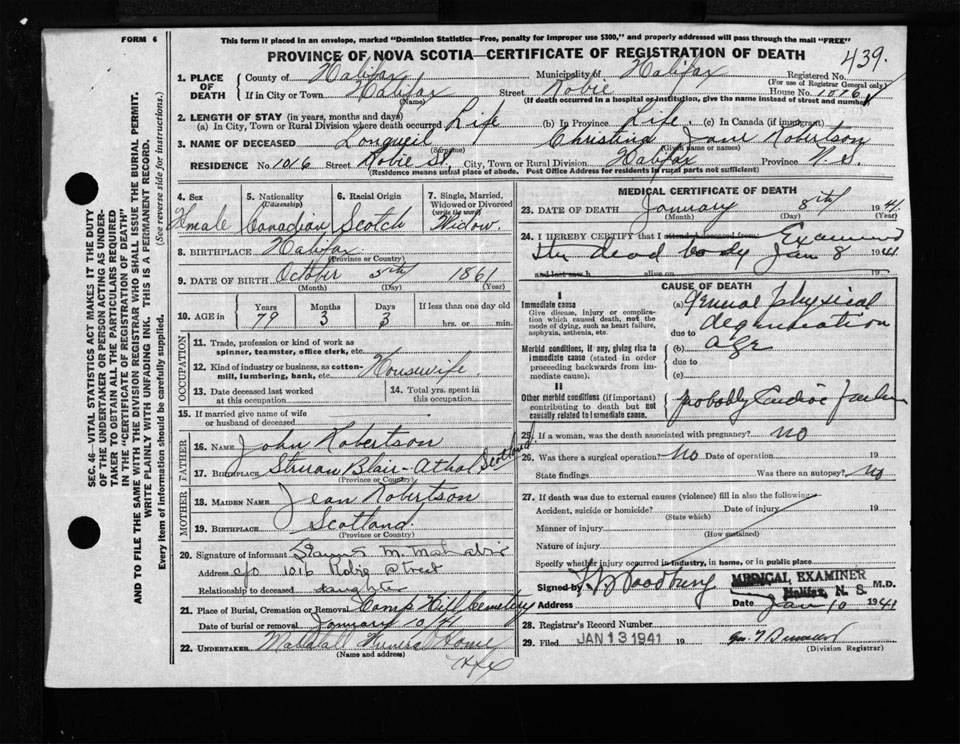 FORM 6
This form if placed in an envelope, marked "Dominion Statistics—Free, penalty for improper use $300," and properly addressed will pass through the mail "FREE"
PROVINCE OF NOVA SCOTIA—CERTIFICATE OF REGISTRATION OF DEATH
439.
1. PLACE OF DEATH
County of Halifax Municipality of Halifax Registered No.
(For use of Registrar General only)
If in City or Town Halifax Street Robie House No. 1016
(Name) (If death occurred in a hospital or institution, give the name instead of street and number)
2. LENGTH OF STAY (in years, months and days)
(a) In City, Town or Rural Division where death occurred Life (b) In Province Life (c) In Canada (if immigrant)
3. NAME OF DECEASED Longueil Christina Jane Robertson
(Surname) (Given name or names)
RESIDENCE No. 1016 Street Robie St. City, Town or Rural Division Halifax Province N.S.
(Residence means usual place of abode. Post Office Address for residents in rural parts not sufficient)
4. Sex 5. Nationality (Citizenship) 6. Racial Origin 7. Single, Married, Widowed or Divorced (write the word)
Female Canadian Scotch Widow.
8. BIRTHPLACE Halifax
(Province or Country)
9. DATE OF BIRTH October 5th 1861
(Month) (Day) (Year)
10. AGE in Years Months Days If less than one day old
79 3 3 hrs. or min.
OCCUPATION
11. Trade, profession or kind of work as spinner, teamster, office clerk, etc.
12. Kind of industry or business, as cotton-mill, lumbering, bank, etc. Housewife.
13. Date deceased last worked at this occupation
14. Total yrs. spent in this occupation
15. If married give name of wife or husband of deceased
FATHER
16. NAME John Robertson
17. BIRTHPLACE Struan Blair-Athol Scotland
(Province or Country)
MOTHER
18. MAIDEN NAME Jean Robertson
19. BIRTHPLACE Scotland.
(Province or Country)
20. Signature of informant M.
Address c/o 1016 Robie Street
Relationship to deceased daughter
21. Place of Burial, Cremation or Removal Camp Hill Cemetery
Date of burial or removal January 10/41
22. UNDERTAKER Funeral Home
(Name and address)
Hfx
MEDICAL CERTIFICATE OF DEATH
23. DATE OF DEATH January 8th 1941
(Month) (Day) (Year)
24. I HEREBY CERTIFY that I attended deceased from: Examined
the dead body Jan 8 1941
and last saw h alive on 19
CAUSE OF DEATH
I
Immediate cause
Give disease, injury or complication which caused death, not the mode of dying, such as heart failure, asphyxia, asthenia, etc.
(a) General physical
degeneration
due to
Morbid conditions, if any, giving rise to immediate cause (stated in order proceeding backwards from immediate cause).
(b) age
due to
(c)
II
Other morbid conditions (if important) contributing to death but not causally related to immediate cause.
probably Cardiac Failure
25. If a woman, was the death associated with pregnancy? no
26. Was there a surgical operation? No Date of operation 19
State findings Was there an autopsy? no
27. If death was due to external causes (violence) fill in also the following
Accident, suicide or homicide? Date of injury 19
(State which)
Manner of injury
(How sustained)
Nature of injury
Specify whether injury occurred in industry, in home, or in public place
Signed by Woodbury M.D.
MEDICAL EXAMINER
Halifax, N. S.
Address Date Jan 10 1941
28. Registrar's Record Number
29. Filed JAN 13 1941 19
(Division Registrar)
SEC. 46—VITAL STATISTICS ACT MAKES IT THE DUTY OF THE UNDERTAKER OR PERSON ACTING AS UNDERTAKER TO OBTAIN ALL THE PARTICULARS REQUIRED IN THE "CERTIFICATE OF REGISTRATION OF DEATH"
AND TO FILE THE SAME WITH THE DIVISION REGISTRAR WHO SHALL ISSUE THE BURIAL PERMIT.
WRITE PLAINLY WITH UNFADING INK. THIS IS A PERMANENT RECORD.
Every item of information should be carefully supplied. (See reverse side for instructions.)